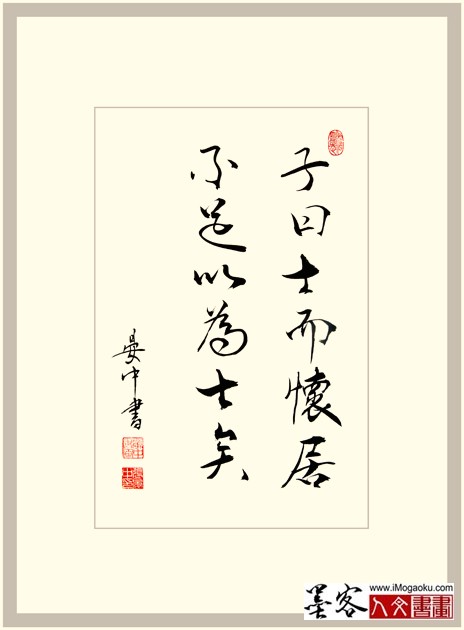 子曰士而懷居
不足以為士矣
晏中書
墨客
www.iMogaoku.com
人文書畫